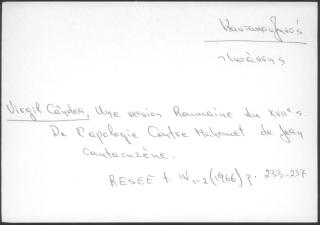 Καντακουζηνός
Ἰωάννης
Virgil Cândea, Une version Roumaine du XVIIe s.
De l'apologie Contre Mahomet de Jean
Cantacuzène.
RESEE t. IV 1-2 (1966) p. 233-237